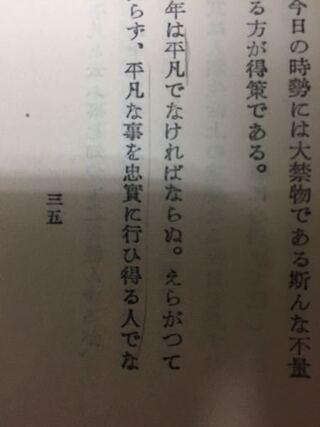 今日の時勢には大禁物である斯んな不量
る方が得策である。
年は平凡でなければならぬ。えらがつて
らず、平凡な事を忠實に行ひ得る人でな
三五